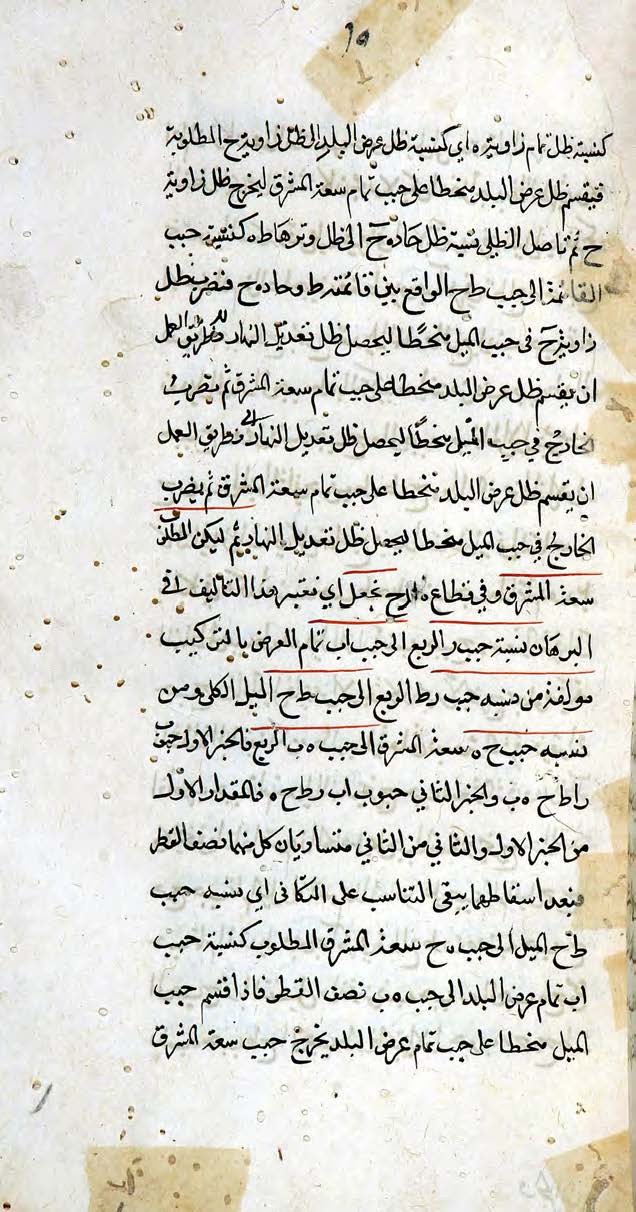 ١٥
كنسبة ظل تمام زاوية ه اي كنسبة ظل عرض البلد الى ظل زاوية ح المطلوبة
فيقسم ظل عرض البلد منحطا على جيب تمام سعة المشرق ليخرج ظل زاوية
ح ثم نسبة ظل حاده ح الى ظل وترها طه كنسبة جيب
القائمة الى جيب طح الواقع بين قائمة ط وحاده ح فنضرب ظل
زاوية ح في جيب الميل منحطا ليحصل ظل تعديل النهار فطريق العمل
ان يقسم ظل عرض البلد منحطا على جيب تمام سعة المشرق ثم يضرب
الخارج في جيب الميل منحطا ليحصل ظل تعديل النهار فطريق العمل
ان يقسم ظل عرض البلد منحطا على جيب تمام سعة المشرق ثم يضرب
الخارج في جيب الميل منحطا ليحصل ظل تعديل النهار ثم ليكن المطلوب
سعة المشرق وفي قطاع نجعل اي نعتبر هذا التاليف في
البرهان نسبة جيب ر الربع الى جيب اب تمام العرض بالتركيب
مولفة من نسبة جيب رط الربع الى جيب طح الميل الكلي ومن
نسبة جيب ح ه سعة المشرق الى جيب ه ب الربع فالحيز الاول جيوب
را طح ه ب والحيز الثاني جيوب اب رط ح ه فالمقدار الاول
من الحيز الاول والثاني من الثاني متساويان كل منهما نصف القطر
فبعد اسقاطهما يبقى التناسب على التكافى اي نسبة جيب
طح الميل الى جيب ه ح سعة المشرق المطلوب كنسبة جيب
اب تمام عرض البلد الى جيب ه ب نصف القطر فاذا قسم جيب
الميل منحطا على جيب تمام عرض البلد يخرج جيب سعة المشرق